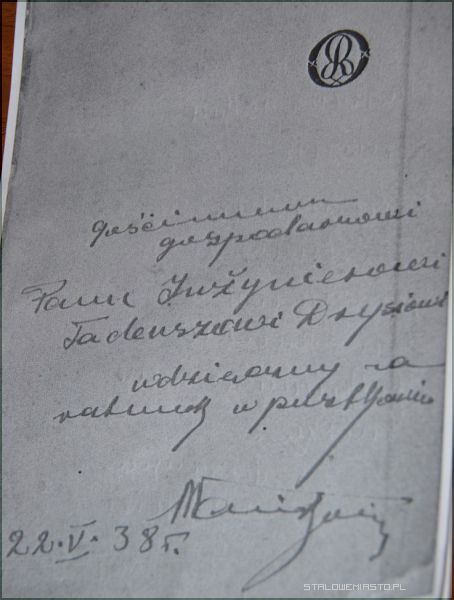 gościnnemu
gospodarzowi
Panu Inżynierowi
Tadeuszowi Drysiowi
wdzięczny za
ratunek w
22.V.38r.
STALOWEMIASTO.PL